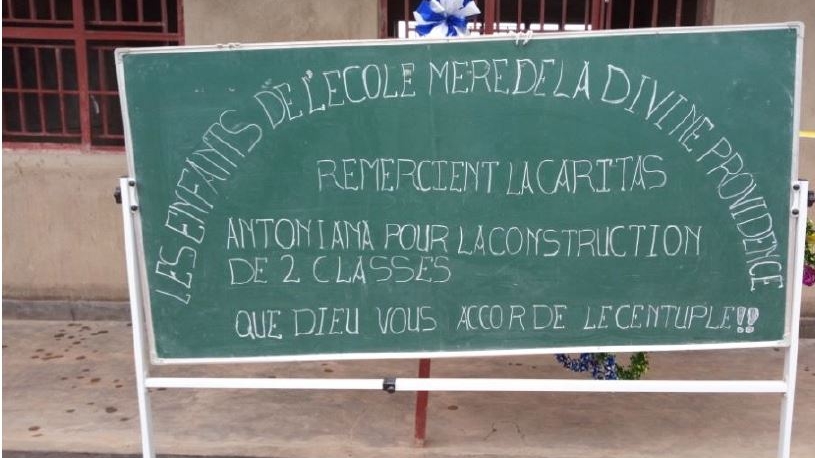 LES ENFANTS DE L'ECOLE MERE DE LA DIVINE PROVIDENCE
REMERCIENT LA CARITAS
ANTONIANA POUR LA CONSTRUCTION
DE 2 CLASSES
QUE DIEU VOUS ACCORDE LE CENTUPLE!!